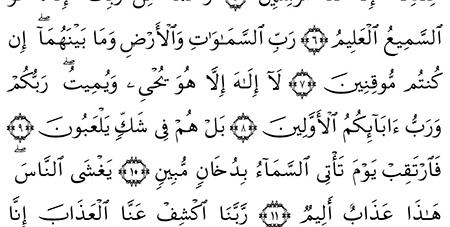 ٱلسَّمِيعُ ٱلْعَلِيمُ ۝٦ رَبِّ ٱلسَّمَٰوَٰتِ وَٱلْأَرْضِ وَمَا بَيْنَهُمَآ ۖ إِن
كُنتُم مُّوقِنِينَ ۝٧ لَآ إِلَٰهَ إِلَّا هُوَ يُحْىِۦ وَيُمِيتُ ۖ رَبُّكُمْ
وَرَبُّ ءَابَآئِكُمُ ٱلْأَوَّلِينَ ۝٨ بَلْ هُمْ فِى شَكٍّ يَلْعَبُونَ ۝٩
فَٱرْتَقِبْ يَوْمَ تَأْتِى ٱلسَّمَآءُ بِدُخَانٍ مُّبِينٍ ۝١٠ يَغْشَى ٱلنَّاسَ ۖ
هَٰذَا عَذَابٌ أَلِيمٌ ۝١١ رَّبَّنَا ٱكْشِفْ عَنَّا ٱلْعَذَابَ إِنَّا